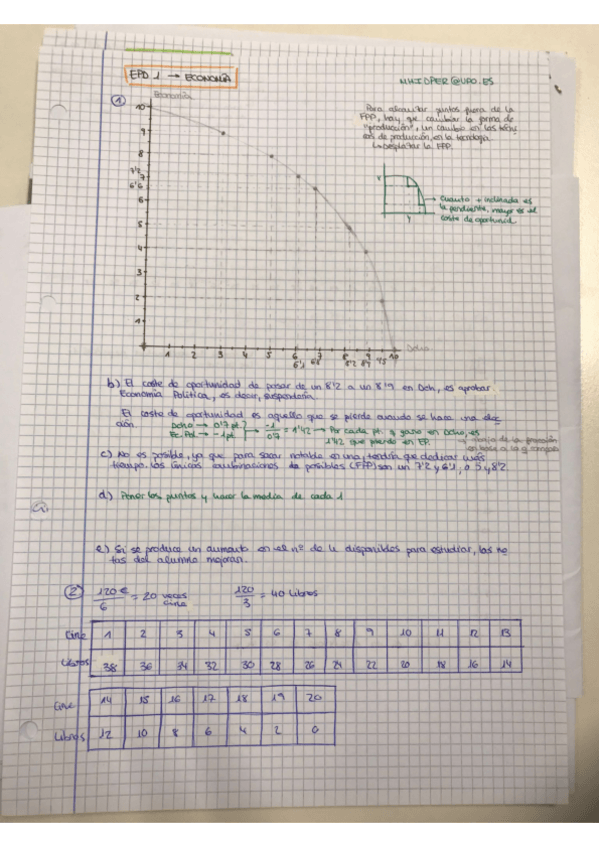 EPD 1 → ECONOMÍA
MHIDPER@UPO.ES
①
Economía
10
9
8
7'2
7
6'6
6
5
4
3
2
1
1 2 3 4 5 6 7 8 9 10
6'1 6'8 8'2 8'9 9'5
Dcho
Para alcanzar puntos fuera de la
FPP, hay que cambiar la forma de
"producción", un cambio en las técni
cas de producción, en la tecnología
↳ desplazar la FPP.
Y
→ cuanto + inclinada es
la pendiente, mayor es el
coste de oportunidad
b) El coste de oportunidad de pasar de un 8'2 a un 8'9 en Dch, es aprobar
Economía Política, es decir, suspendería.
El coste de oportunidad es aquello que se pierde cuando se hace una deci
ción. Dcho → 0'7 pt. → -1/0'7 = 1'42 → Por cada pt. q gano en Dcho, es
Ec. Pol → -1 pt 1'42 que pierdo en EP.
c) No es posible, ya que para sacar notable en una, tendría que dedicar más
tiempo. Las únicas combinaciones de posibles (FPP) son un 7'2 y 6'1, o 5 y 8'2
d) Poner los puntos y hacer la media de cada 1
e) Si se produce un aumento en el nº de h disponibles para estudiar, las no
tas del alumno mejoran.
② 120€/6 = 20 veces cine 120/3 = 40 Libros
Cine 1 2 3 4 5 6 7 8 9 10 11 12 13
Libros 38 36 34 32 30 28 26 24 22 20 18 16 14
Cine 14 15 16 17 18 19 20
Libros 12 10 8 6 4 2 0